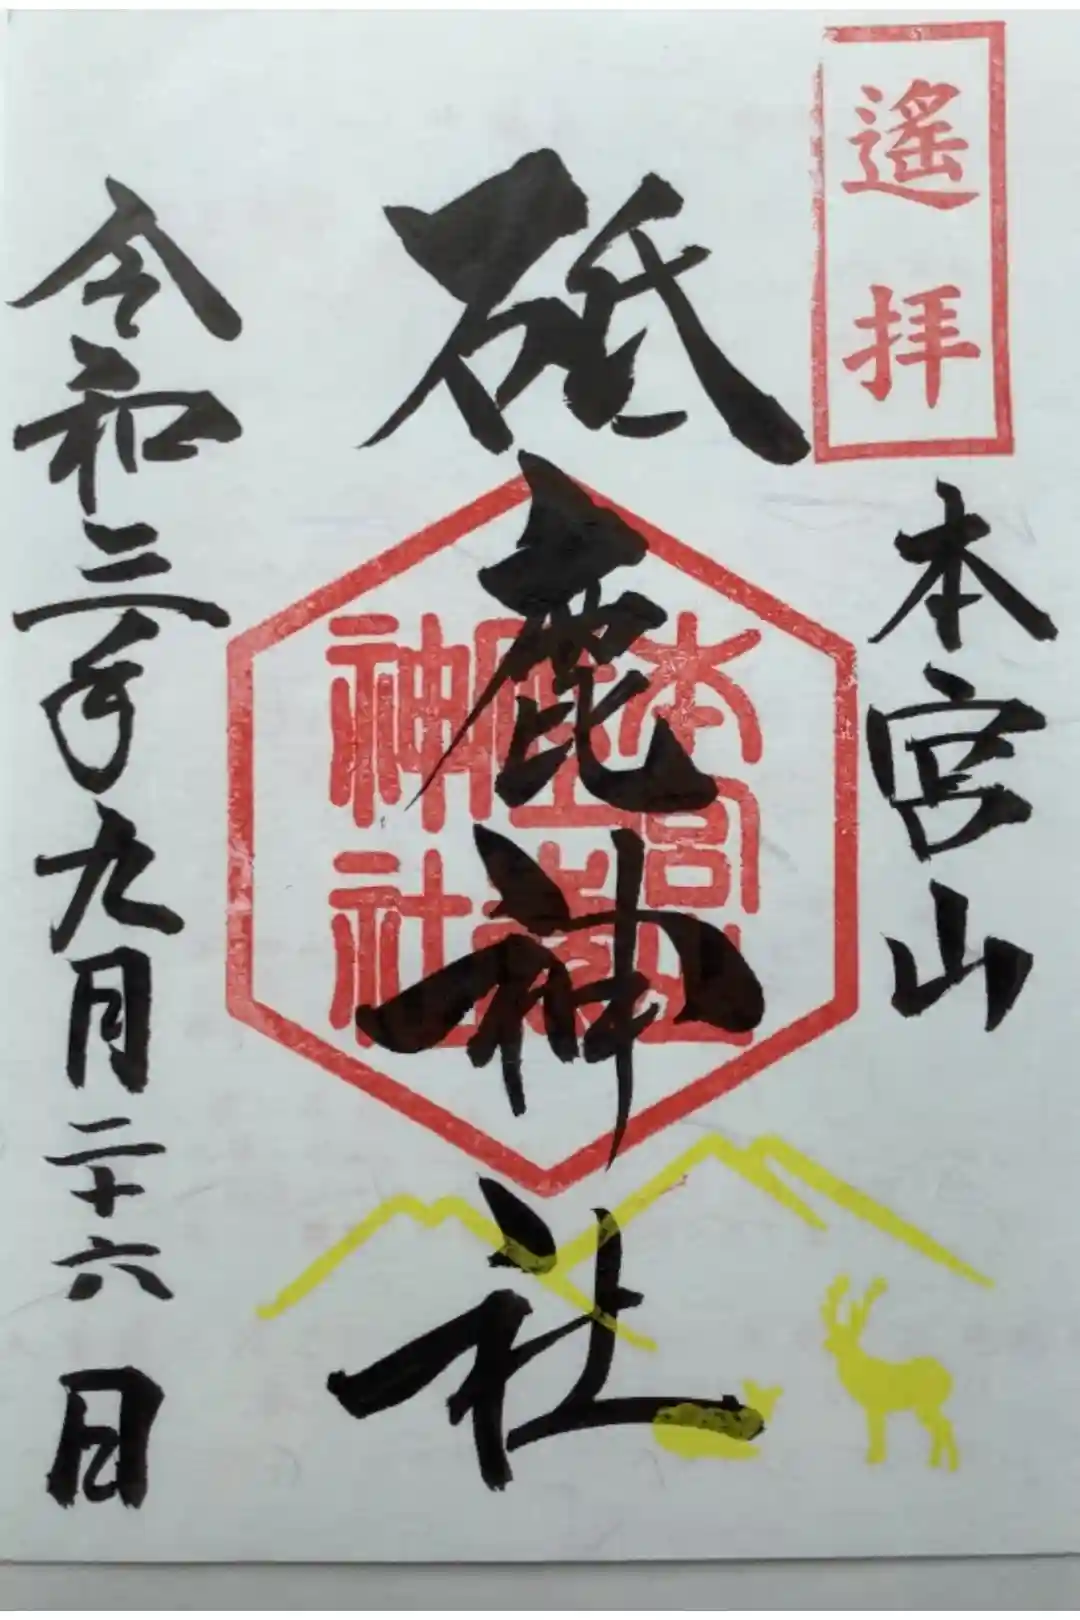 遙拝
本宮山
砥鹿神社
令和三年九月二十六日
本宮
神社